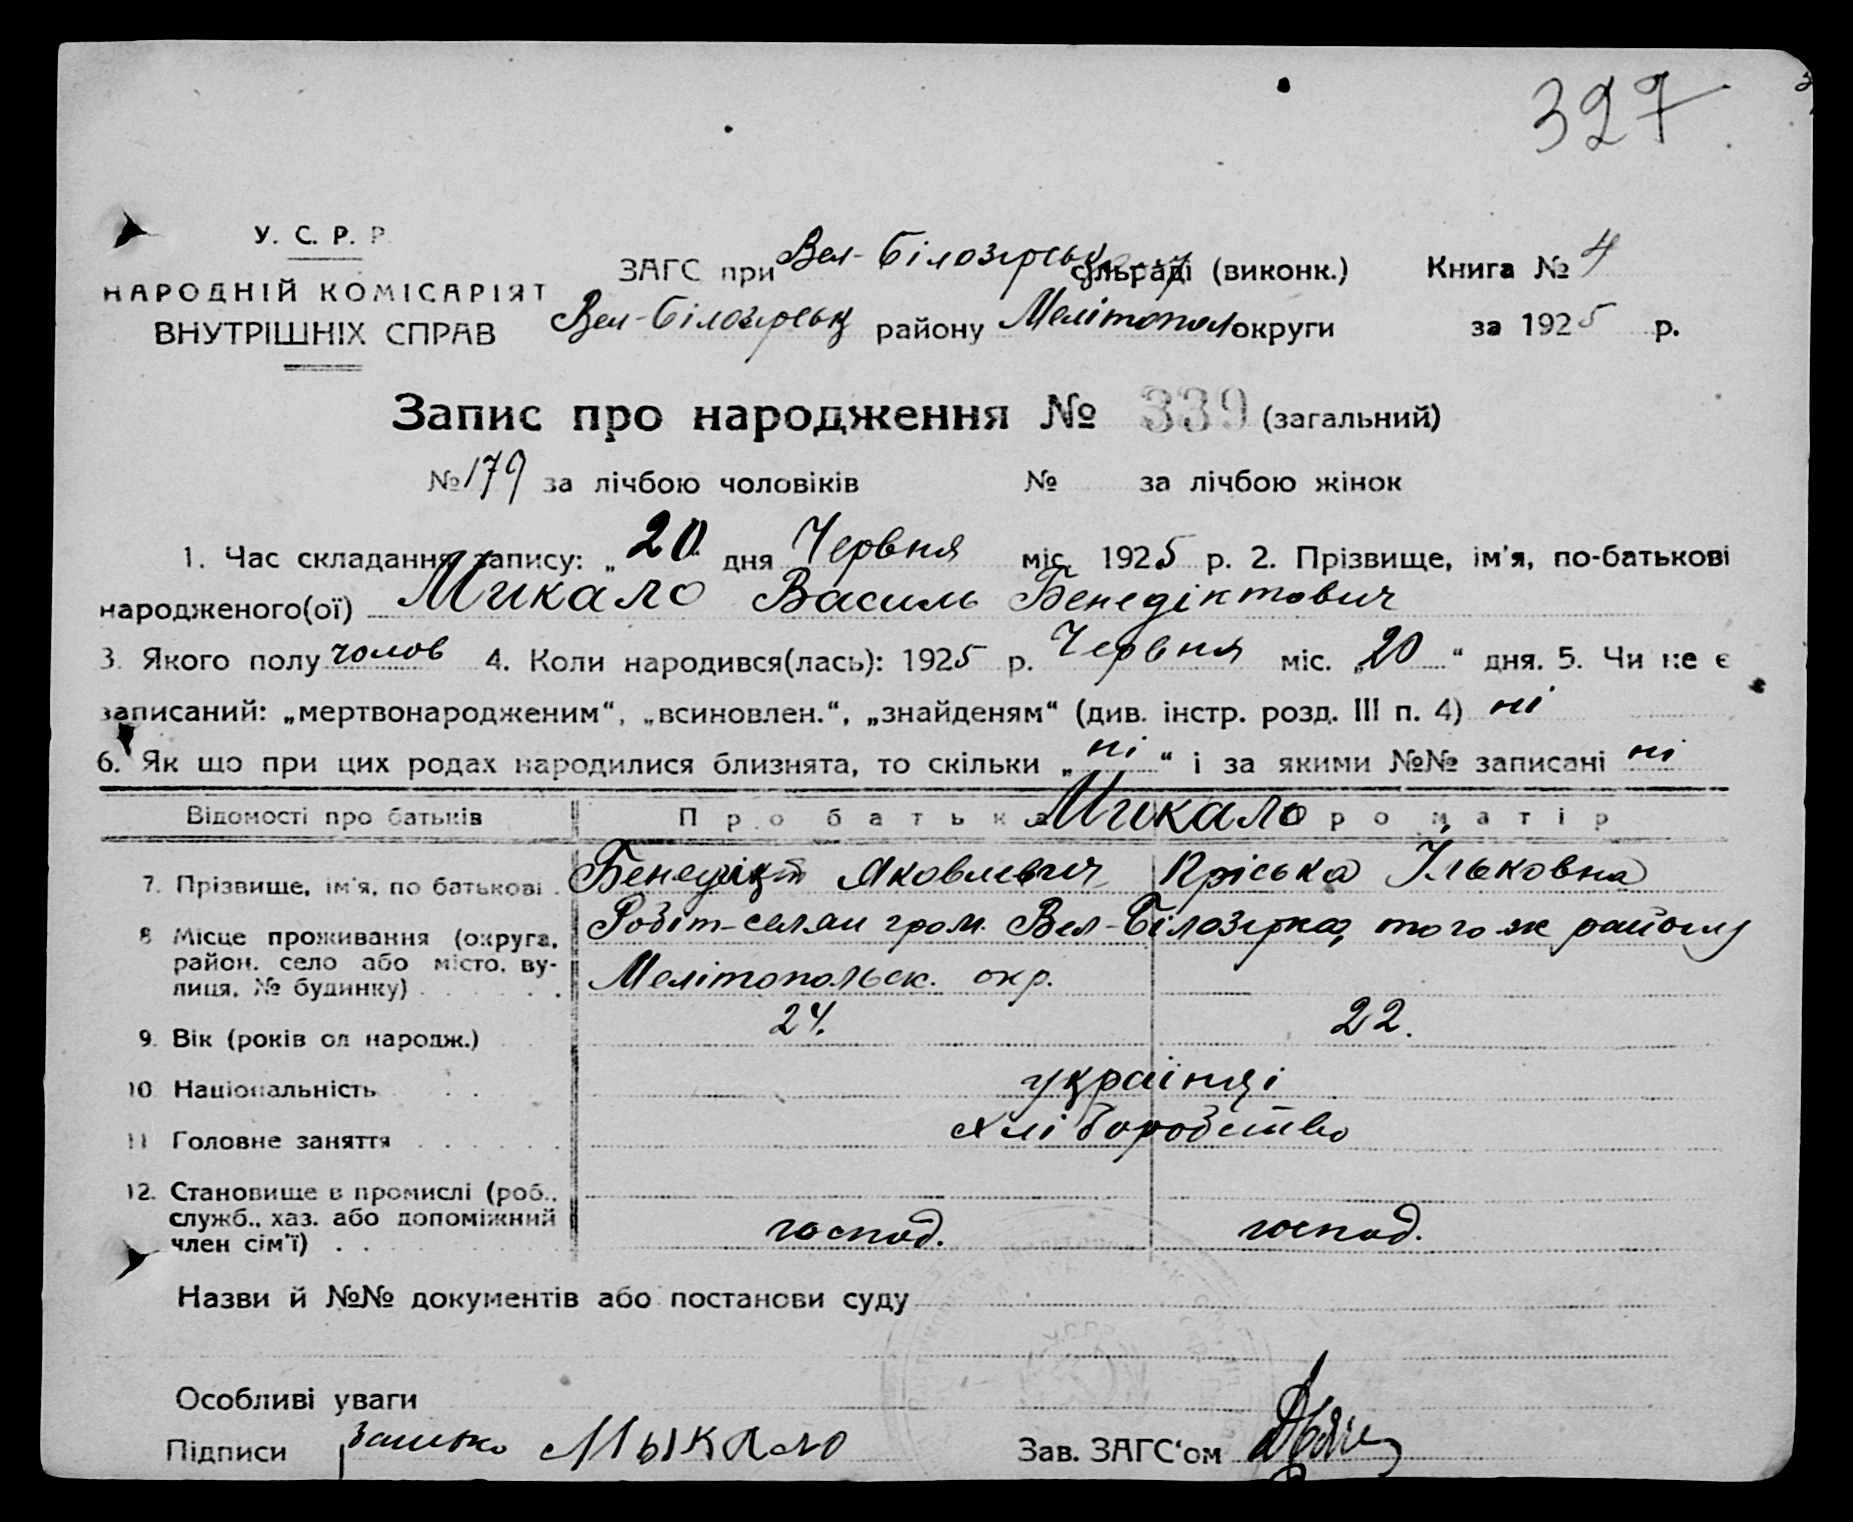 327
У. С. Р. Р.
НАРОДНІЙ КОМІСАРІЯТ
ВНУТРІШНІХ СПРАВ
ЗАГС при Вел-Білозірськ сільраді (виконк.) Книга № 4
Вел-Білозірськ району Мелітопол округи за 1925 р.
Запис про народження № 339 (загальний)
№ 179 за лічбою чоловіків № за лічбою жінок
1. Час складання запису: „20 дня Червня міс. 1925 р. 2. Прізвище, ім'я, по-батькові
народженого(ої) Микало Василь Бенедіктович
3. Якого полу чолов 4. Коли народився(лась): 1925 р. Червня міс. „20“ дня. 5. Чи не є
записаний: „мертвонародженим“, „всиновлен.“, „знайденям“ (див. інстр. розд. III п. 4) ні
6. Як що при цих родах народилися близнята, то скільки „ні“ і за якими №№ записані ні
Відомості про батьків Про батька Микало Про матір
7. Прізвище, ім'я, по батькові Бенедикт Яковлевич Пріська Ільковна
8 Місце проживання (округа, район, село або місто, вулиця, № будинку) Робіт-селян гром. Вел-Білозірка, того-ж району
Мелітопольск. окр.
9. Вік (років од народж.) 24. 22.
10 Національність українці
11 Головне заняття хліборобство
12. Становище в промислі (роб., служб., хаз. або допоміжний член сім'ї) господ. господ.
Назви й №№ документів або постанови суду
Особливі уваги
Підписи батько Мыкало Зав. ЗАГС'ом